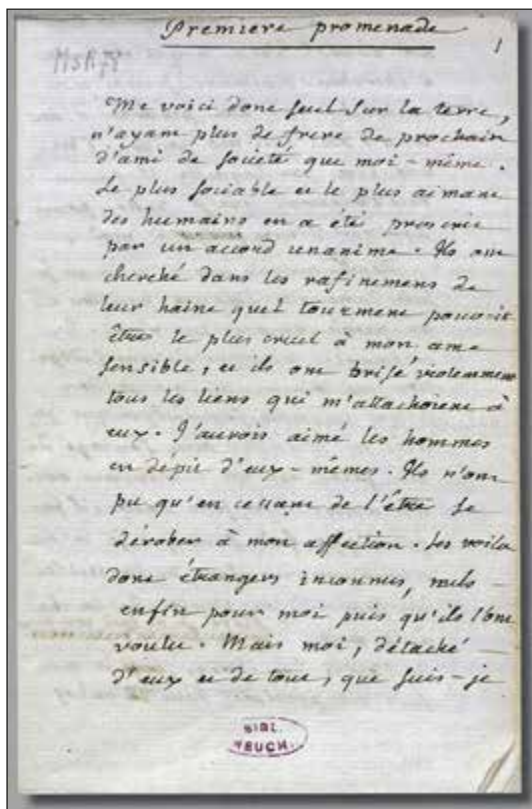 Premiere promenade
1
MsR78
Me voici donc seul sur la terre,
n'ayant plus de frere de prochain
d'ami de société que moi-même.
Le plus sociable et le plus aimant
des humains en a été proscrit
par un accord unanime. Ils ont
cherché dans les rafinemens de
leur haine quel tourment pouvoit
être le plus cruel à mon ame
sensible, et ils ont brisé violemment
tous les liens qui m'attachoient à
eux. J'aurois aimé les hommes
en dépit d'eux-mêmes. Ils n'ont
pu qu'en cessant de l'être se
dérober à mon affection. Les voila
donc étrangers inconnus, nuls
enfin pour moi puis qu'ils l'ont
voulu. Mais moi, détaché
d'eux et de tout, que suis-je
BIBL.
NEUCH.